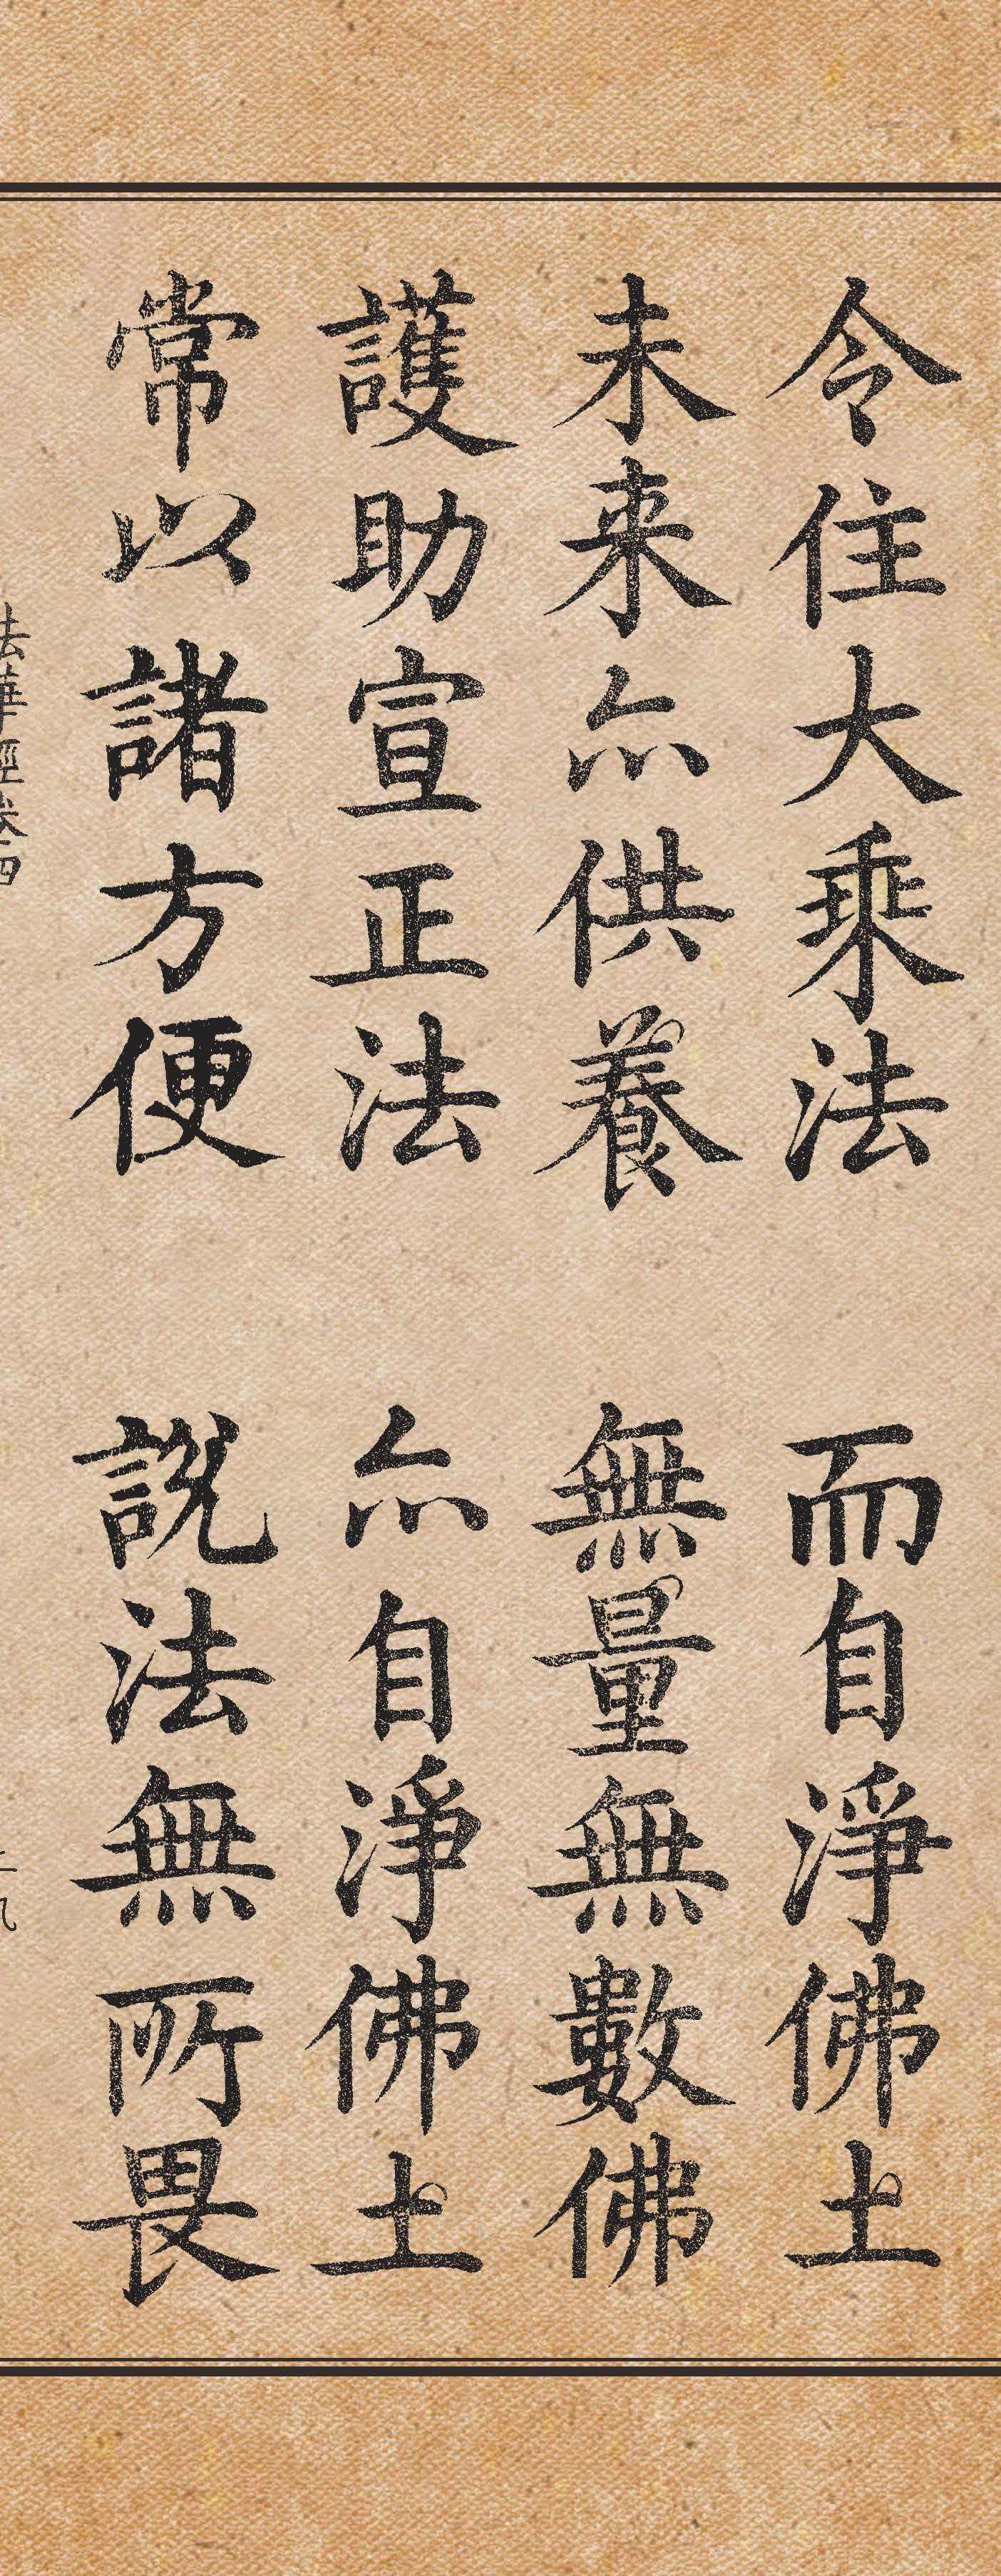 令住大乘法　而自淨佛土
未来亦供養　無量無數佛
護助宣正法　亦自淨佛土
常以諸方便　說法無所畏
法華經卷四